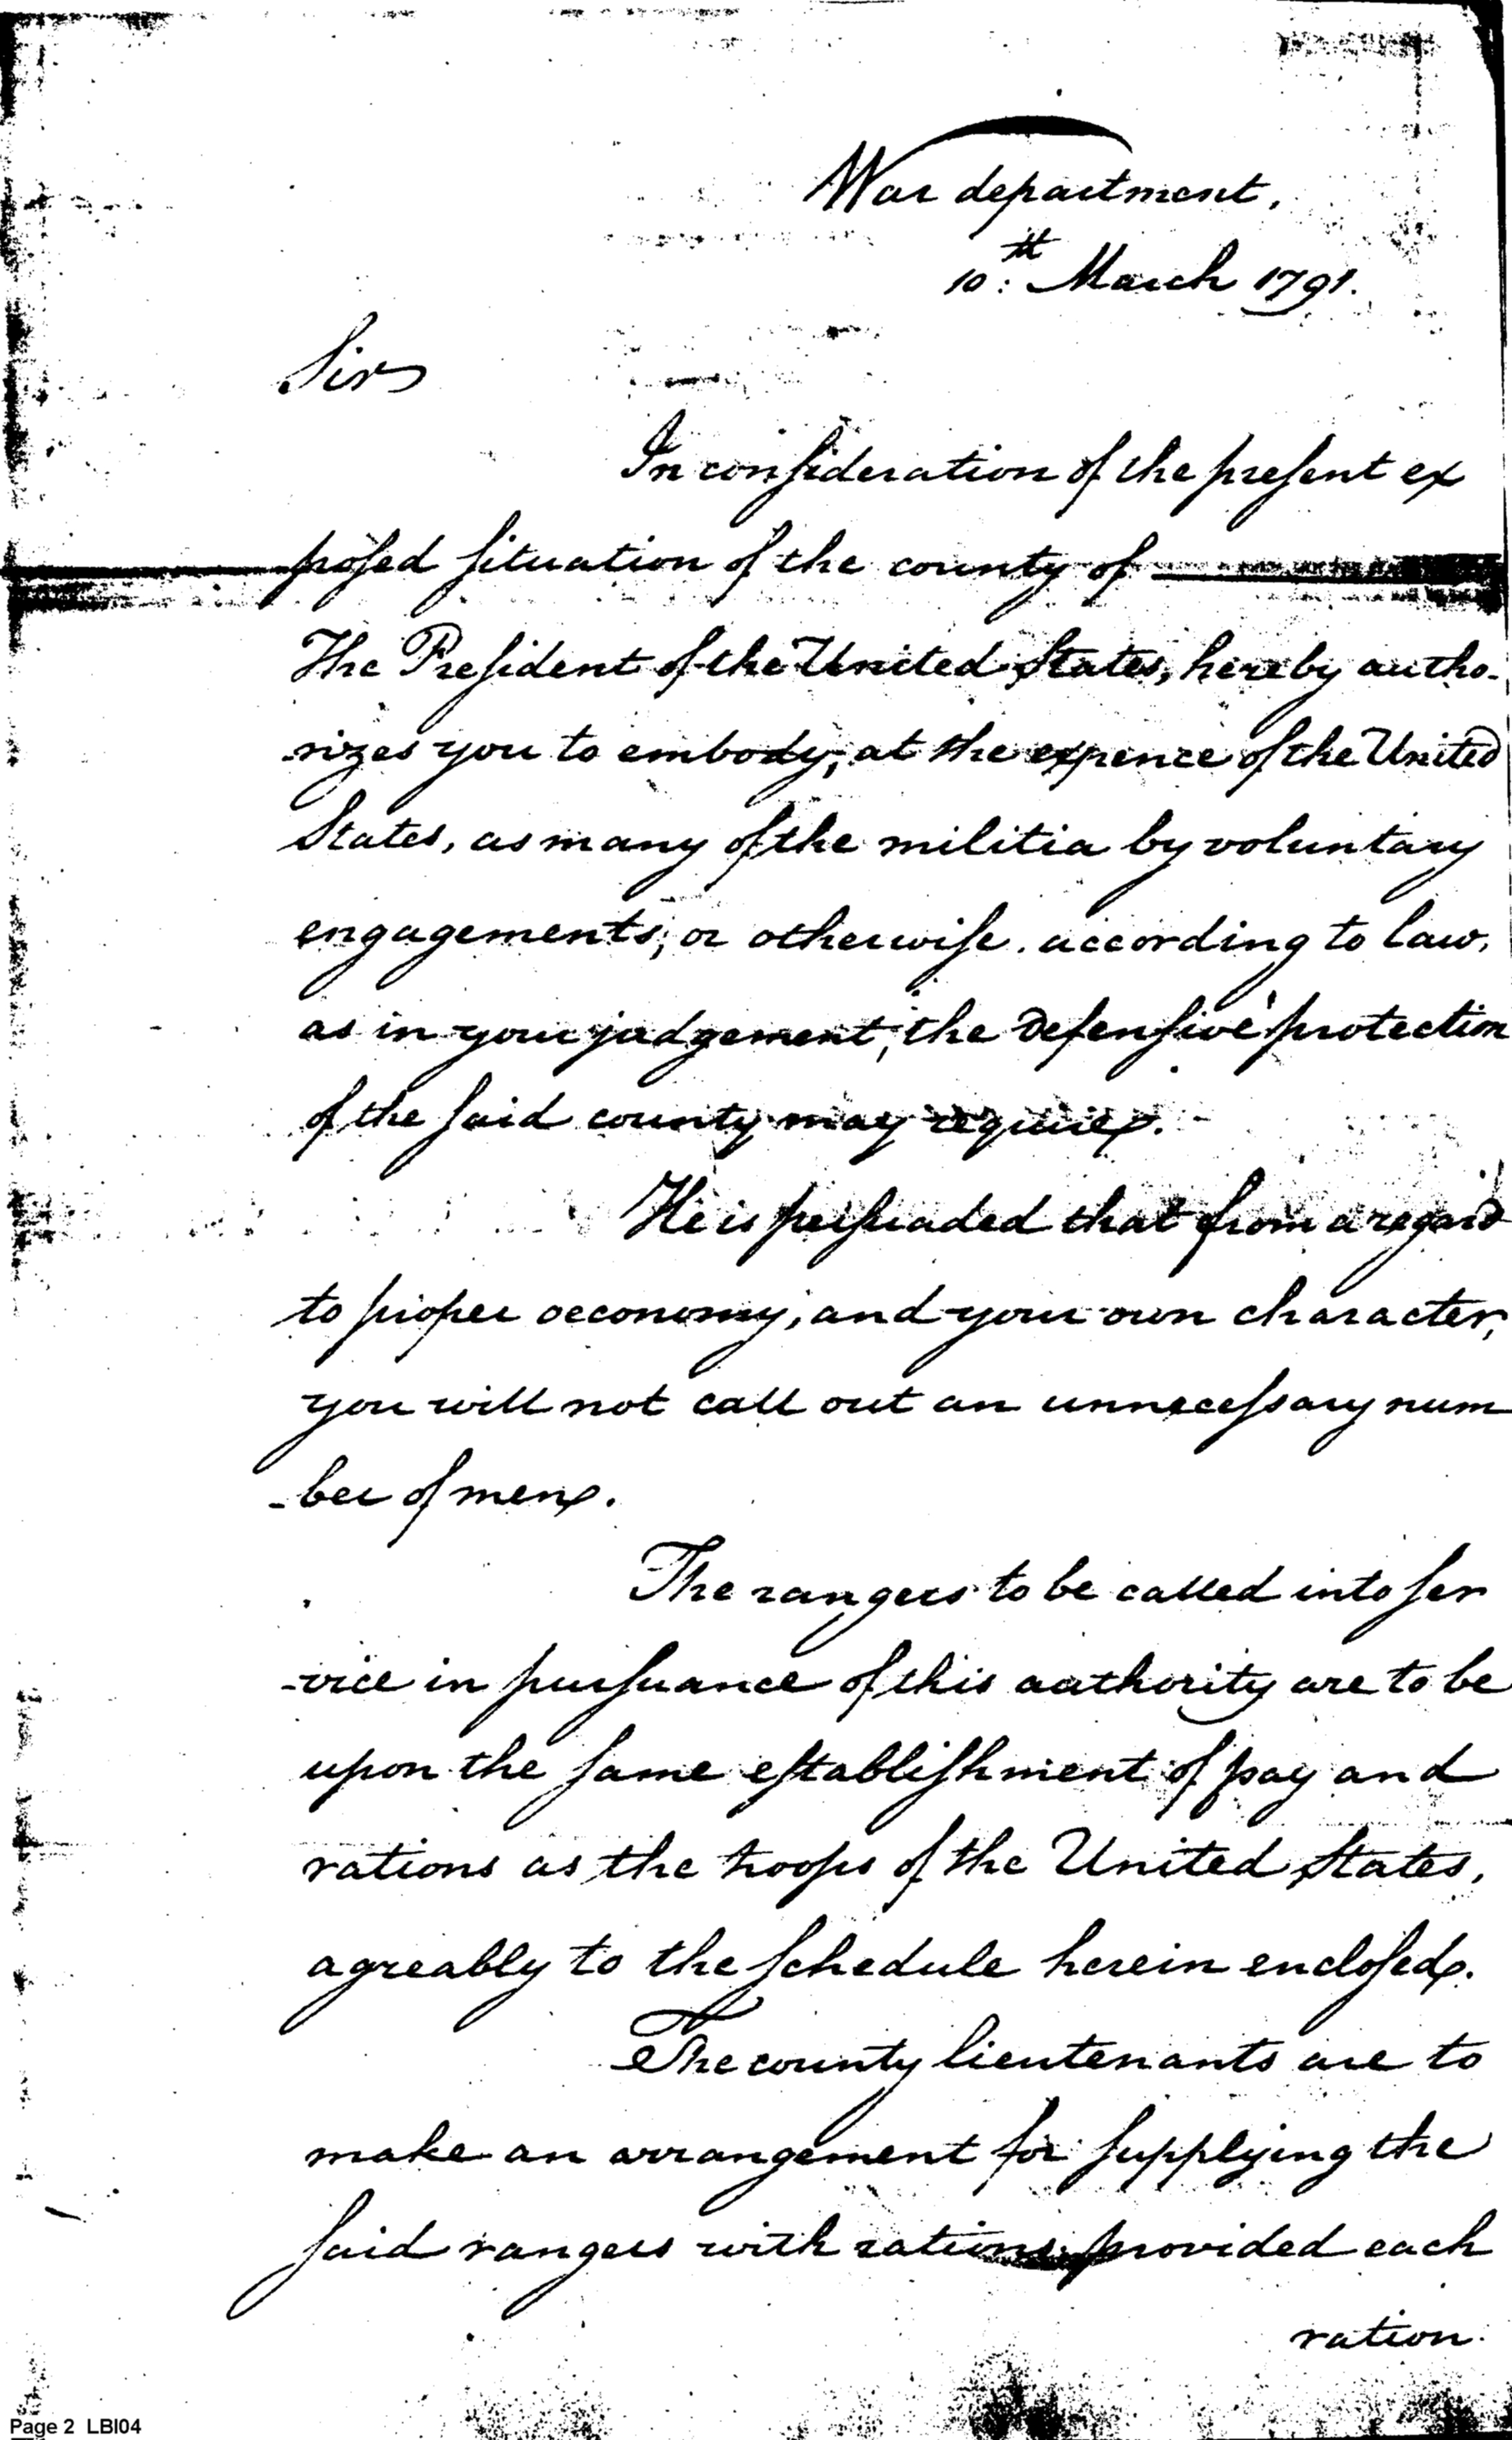 War department,
10:th March 1791.
Sir
In consideration of the present ex
posed situation of the county of
The President of the United States, hereby autho-
rizes you to embody, at the expence of the United
States, as many of the militia by voluntary
engagements, or otherwise. according to law,
as in your judgement, the defensive protection
of the said county may require.
He is persuaded that from a regard
to proper oeconomy, and your own character,
you will not call out an unnecessary num
-ber of men.
The rangers to be called into ser
-vice in pursuance of this authority are to be
upon the same establishment of pay and
rations as the troops of the United States,
agreably to the schedule herein enclosed.
The county lieutenants are to
make an arrangement for supplying the
said rangers with rations provided each
ration.
Page 2 LBI04